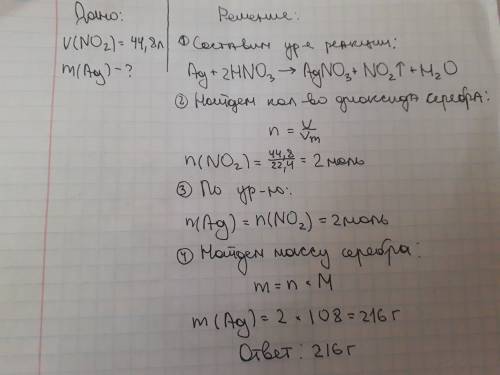 Дано:
V(NO₂) = 44,8л
m(Ag) - ?
Решение:
① Составим ур-е реакции:
Ag + 2HNO₃ → AgNO₃ + NO₂↑ + H₂O
② Найдем кол-во диоксида серебра:
n = V/Vm
n(NO₂) = 44,8/22,4 = 2 моль
③ По ур-ю:
n(Ag) = n(NO₂) = 2 моль
④ Найдем массу серебра:
m = n • M
m(Ag) = 2 × 108 = 216 г
Ответ: 216 г